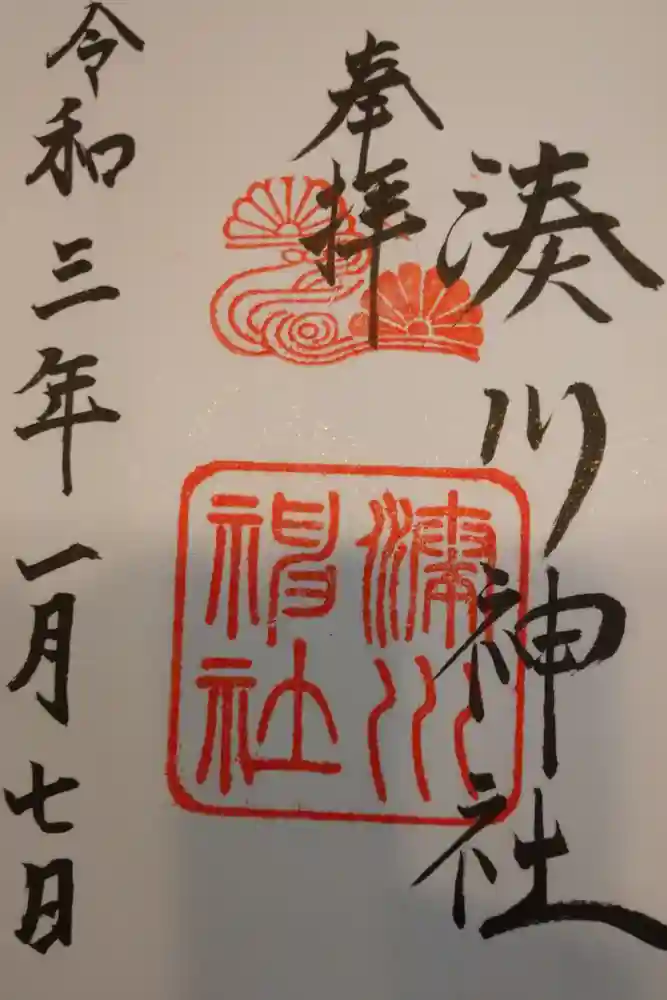 湊川神社
奉拝
湊川
神社
令和三年一月七日